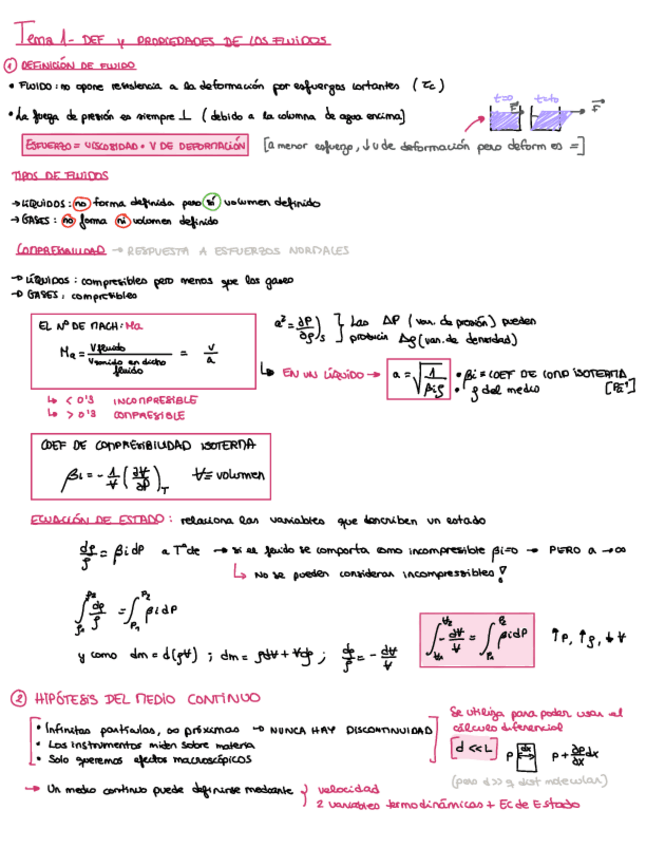 Tema 1- DEF y PROPIEDADES DE LOS FLUIDOS
① DEFINICIÓN DE FLUIDO
• FLUIDO: no opone resistencia a la deformación por esfuerzos cortantes (τc)
• La fuerza de presión es siempre ⊥ (debido a la columna de agua encima]
t=0 t=t0
F F
ESFUERZO = VISCOSIDAD · V DE DEFORMACIÓN [a menor esfuerzo, ↓v de deformación pero deform es =]
TIPOS DE FLUIDOS
→ LÍQUIDOS: no forma definida pero sí volumen definido
→ GASES: no forma ni volumen definido
COMPRESIBILIDAD → RESPUESTA A ESFUERZOS NORMALES
→ LÍQUIDOS: compresibles pero menos que los gases
→ GASES: compresibles
EL Nº DE MACH: Ma
Ma = V fluido / V sonido en dicho fluido = v / a
a² = ∂P/∂ρ)s } Las ΔP (var. de presión) pueden
producir Δρ (var. de densidad)
↳ EN UN LÍQUIDO → a = √(1/βiρ) • βi = COEF DE COMP ISOTERMA [Pa⁻¹]
• ρ del medio
↳ < 0'3 INCOMPRESIBLE
↳ > 0'3 COMPRESIBLE
COEF DE COMPRESIBILIDAD ISOTERMA
βi = - 1/V (∂V/∂P)T V ≡ volumen
ECUACIÓN DE ESTADO: relaciona las variables que describen un estado
dρ/ρ = βi dP a Tª de → si el fluido se comporta como incompresible βi=0 → PERO a → ∞
↳ No se pueden considerar incompresibles!
∫ρ1^ρ2 dρ/ρ = ∫P1^P2 βi dP
y como dm = d(ρV) ; dm = ρdV + Vdρ ; dρ/ρ = - dV/V
∫V1^V2 - dV/V = ∫P1^P2 βi dP ↑P, ↑ρ, ↓V
② HIPÓTESIS DEL MEDIO CONTINUO
• Infinitas partículas, ∞ próximas → NUNCA HAY DISCONTINUIDAD
• Los instrumentos miden sobre materia
• Solo queremos efectos macroscópicos
Se utiliza para poder usar el
cálculo diferencial
d << L P dx P + ∂P/∂x dx
(pero d >> q dist molecular)
→ Un medio continuo puede definirse mediante } velocidad
2 variables termodinámicas + Ec de Estado